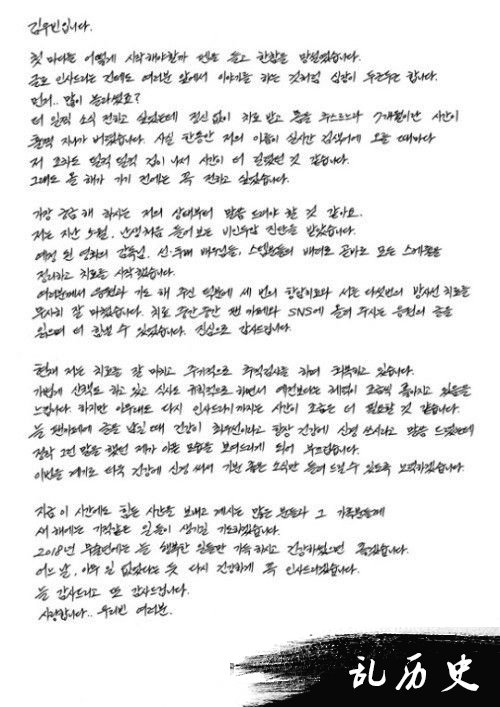 김우빈입니다.
첫 마디는 어떻게 시작해야할까 펜을 들고 한참을 망설였습니다.
글로 인사드리는 건데도 여러분 앞에서 이야기를 하는 것처럼 심장이 두근두근 합니다.
먼저.. 많이 놀라셨죠?
더 일찍 소식 전하고 싶었는데 정신 없이 치료 받고 몸을 추스르느라 7개월이란 시간이
훌쩍 지나가 버렸습니다. 사실 한동안 저의 이름이 실시간 검색어에 오를 때마다
저 조차도 덜컥 덜컥 겁이 나서 시간이 더 걸렸던 것 같습니다.
그래도 올 해가 가기 전에는 꼭 전하고 싶었습니다.
가장 궁금해 하시는 저의 상태부터 말씀 드려야 할 것 같아요.
저는 지난 5월, 난생처음 들어보는 비인두암 진단을 받았습니다.
예정 된 영화의 감독님, 선·후배 배우님들, 스텝분들의 배려로 곧바로 모든 스케줄을
정리하고 치료를 시작했습니다.
여러분께서 응원과 기도 해 주신 덕분에 세 번의 항암치료와 서른 다섯번의 방사선 치료를
무사히 잘 마쳤습니다. 치료 중간중간 팬 카페나 SNS에 올려 주시는 응원의 글을
읽으며 더 힘낼 수 있었습니다. 진심으로 감사드립니다.
현재 저는 치료를 잘 마치고 주기적으로 추적검사를 하며 회복하고 있습니다.
가볍게 산책도 하고 있고 식사도 규칙적으로 하면서 예전보다는 체력이 조금씩 좋아지고 있음을
느낍니다. 하지만 아무래도 다시 인사드리기까지는 시간이 조금은 더 필요할 것 같습니다.
늘 팬카페에 글을 남길 때 건강이 최우선이라고 항상 건강에 신경 쓰시라고 말씀 드렸는데
정작 그런 말을 했던 제가 아픈 모습을 보여드리게 되어 부끄럽습니다.
이번을 계기로 더욱 건강에 신경 써서 기분 좋은 소식만 들려 드릴 수 있도록 노력하겠습니다.
지금 이 시간에도 힘든 시간을 보내고 계시는 많은 분들과 그 가족분들께
새 해에는 기적같은 일들이 생기길 기도하겠습니다.
2018년 무술년에는 늘 행복한 일들만 가득 하시고 건강하셨으면 좋겠습니다.
어느 날, 아무 일 없었다는 듯 다시 건강하게 꼭 인사드리겠습니다.
늘 감사드리고 또 감사드립니다.
사랑합니다.. 우리빈 여러분.
乱历史